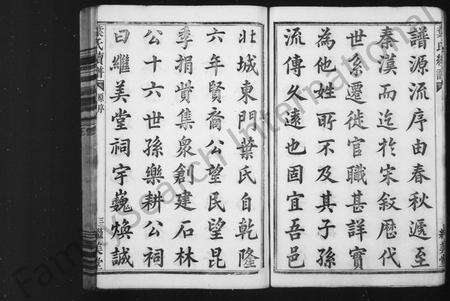 譜源流序由春秋遞至
秦漢而迄於宋叙歷代
世系遷徙官職甚詳實
為他姓所不及其子孫
流傳久遠也固宜吾邑
北城東門葉氏自乾隆
六年賢裔公望氏望昆
季捐貲集眾創建石林
公十六世孫樂耕公祠
曰繼美堂祠宇巍煥誠
葉氏續譜
源序
三
繼美堂
FamilySearch International